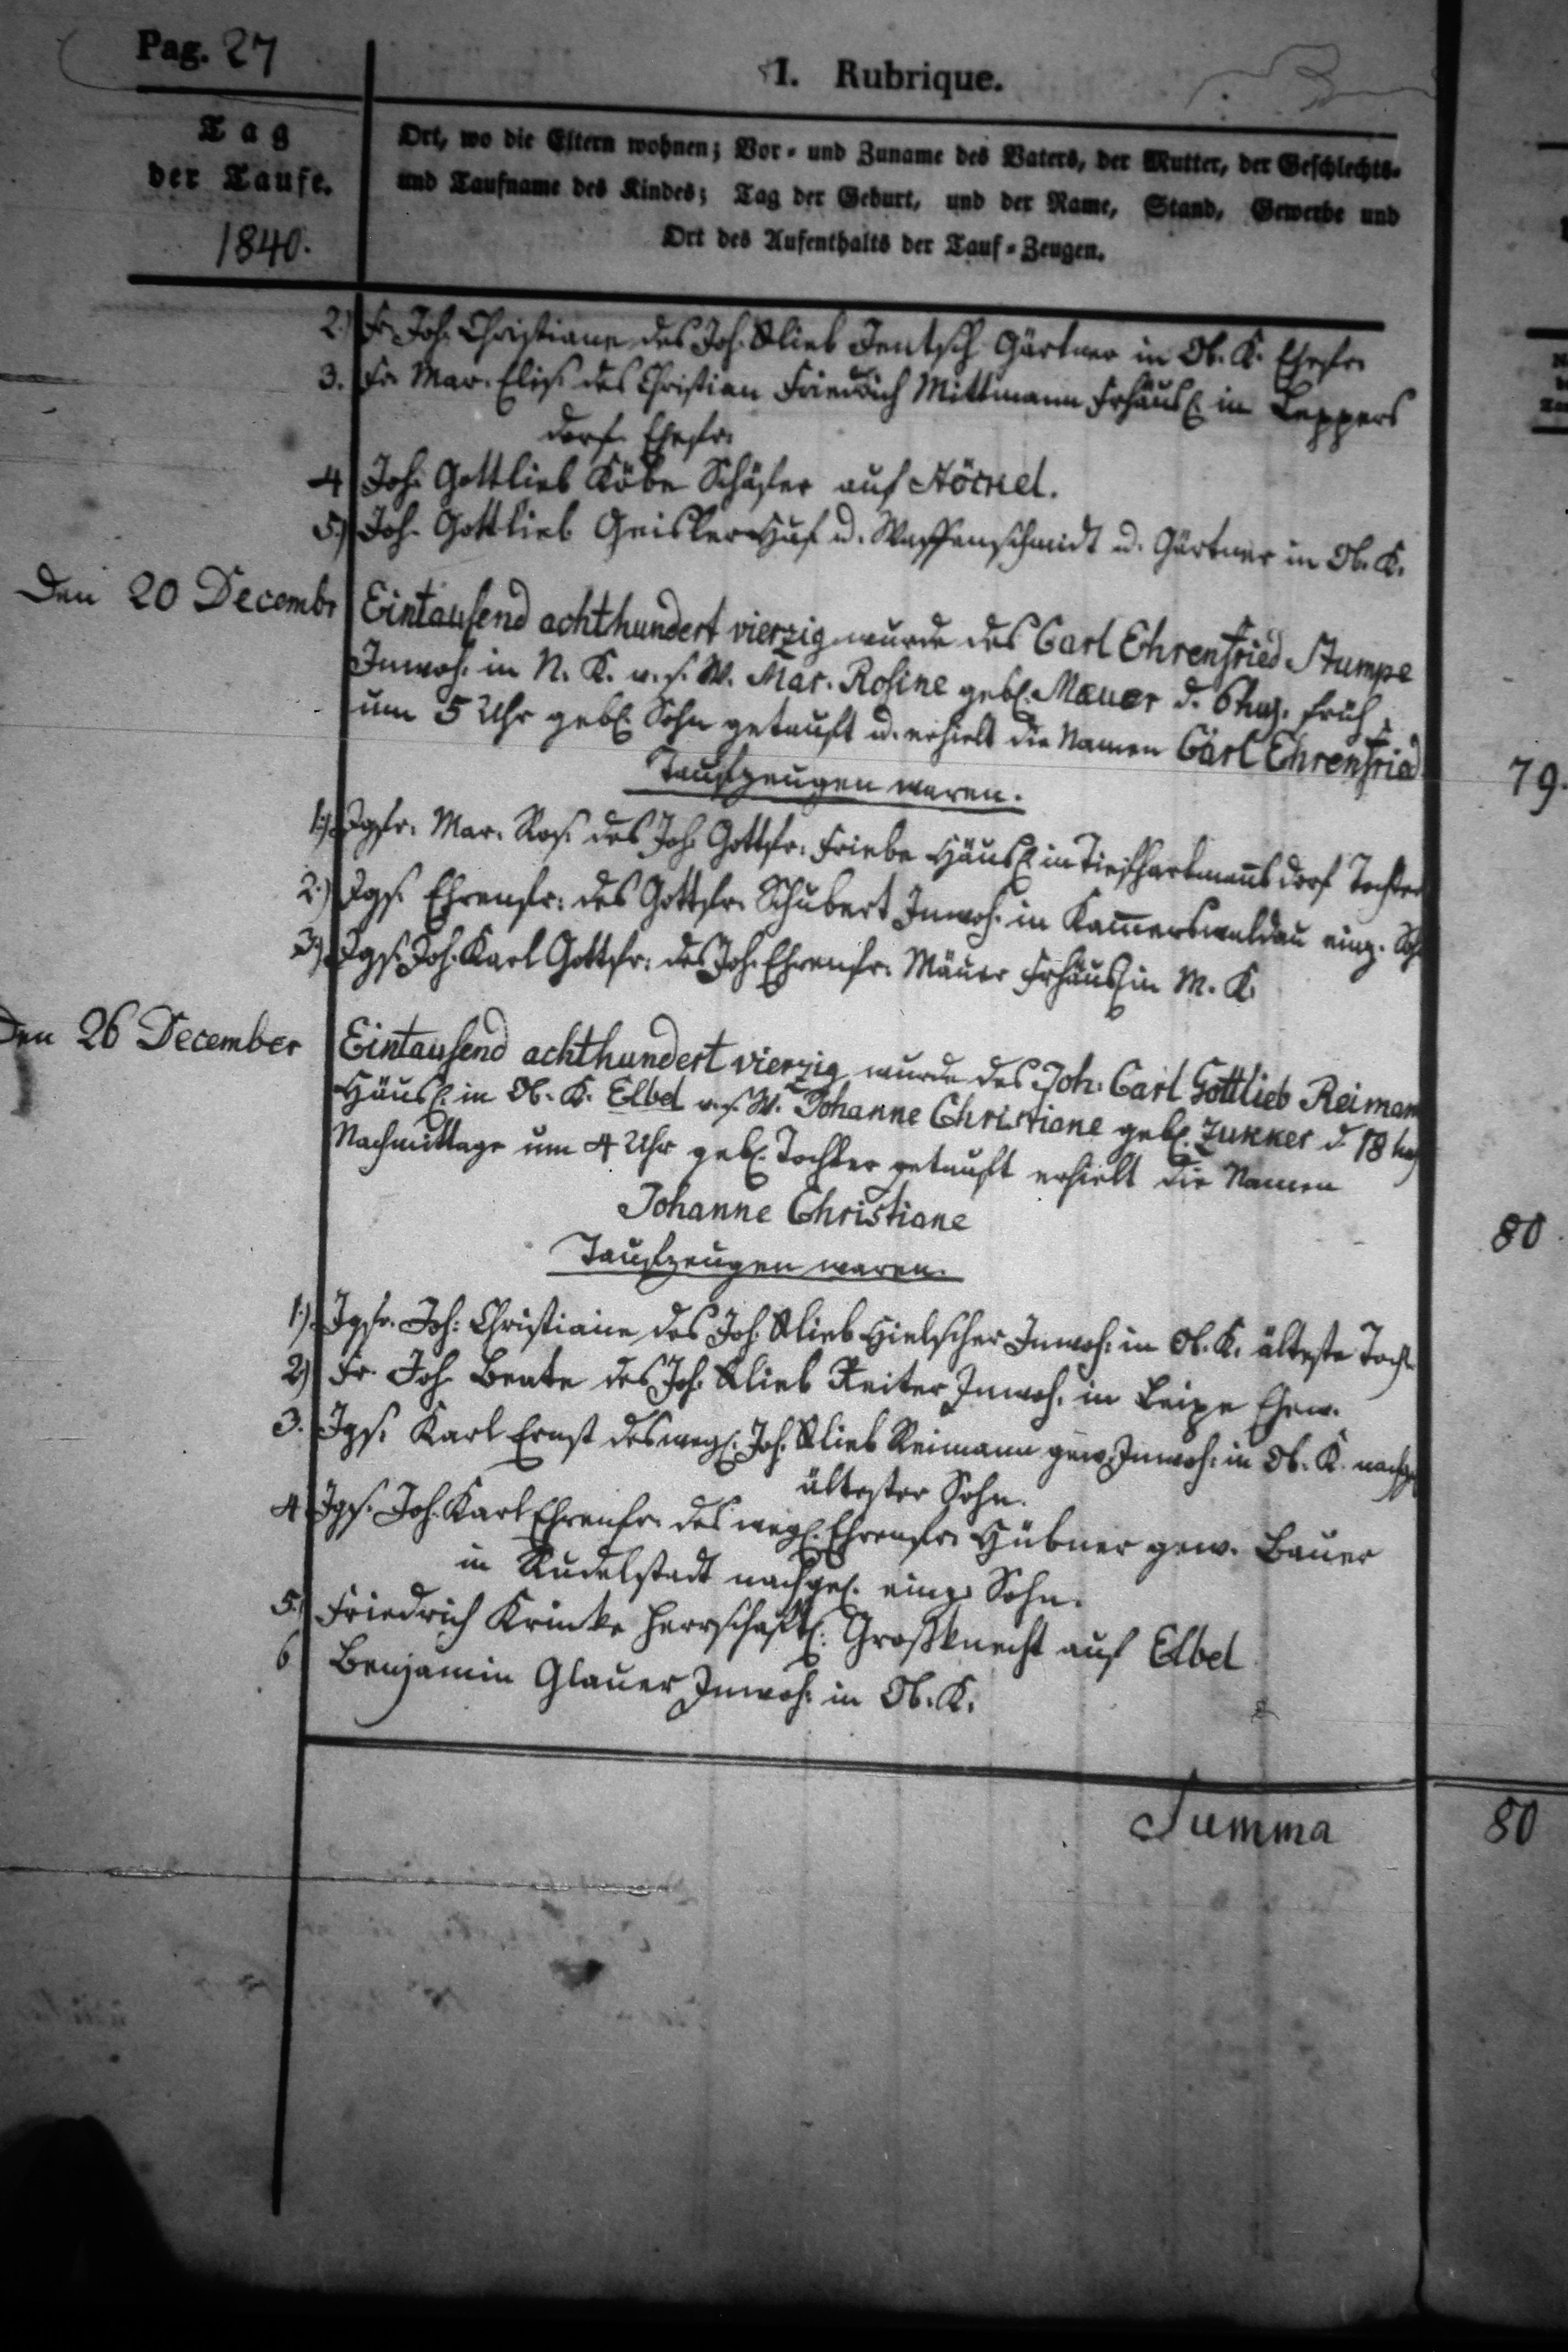 Pag. 27
I. Rubrique.
Tag
der Taufe.
1840.
Ort, wo die Eltern wohnen; Vor- und Zuname des Vaters, der Mutter, der Geschlechts-
und Taufname des Kindes; Tag der Geburt, und der Name, Stand, Gewerbe und
Ort des Aufenthalts der Tauf-Zeugen.
2.) Fr. Joh. Christiane des Joh. Glieb Jentsch Gärtner in Ob. K. Ehefr.
3. Fr. Mar. Elis. des Christian Friedrich Mittmann Frhäusl. in Leppers
dorf Ehefr.
4 Joh. Gottlieb Köbe Schäfer auf Störnel.
5.) Joh. Gottlieb Geisler Huf u. Waffenschmidt u. Gärtner in Ob. K.
Den 20 Decembr Eintausend achthundert vierzig wurde des Carl Ehrenfried Stumpe
Inwoh. in N. K. u. s. W. Mar. Rosine geb. Mæuer d. 6 huj. früh
um 5 Uhr geb. Sohn getauft u. erhielt die Namen Carl Ehrenfried
Taufzeugen waren.
79.
1.) Jgfr. Mar. Ros. des Joh. Gottfr. Friebe Häusl. in Tiefhartmannsdorf Tochter
2.) Jgs. Ehrenfr. des Gottfr. Schubert Inwoh. in Kammerswaldau einz. Soh
3.) Jgs. Joh. Karl Gottfr. des Joh. Ehrenfr. Mäuer Frhäusl. in M. K.
Den 26 December Eintausend achthundert vierzig wurde des Joh. Carl Gottlieb Reimann
Häusl. in Ob. K. Elbel u. s. W. Johanne Christiane geb. Zukker d. 18 huj
Nachmittage um 4 Uhr geb. Tochter getauft erhielt die Namen
Johanne Christiane
80.
Taufzeugen waren.
1.) Jgfr. Joh. Christiane des Joh. Glieb Hielscher Inwoh. in Ob. K. älteste Tocht.
2) Fr. Joh. Beate des Joh. Glieb Reiter Inwoh. in Leipe Ehew.
3. Jgs. Karl Ernst des weyl. Joh. Glieb Reimann gew. Inwoh. in Ob. K. nachgel
ältester Sohn.
4 Jgs. Joh. Karl Ehrenfr. des weyl. Ehrenfr. Hübner gew. Bauer
in Rudelstadt nachgel. einz. Sohn.
5.) Friedrich Krinke herrschaftl. Großknecht auf Elbel
6 Benjamin Glauer Inwoh. in Ob. K.
Summa 80